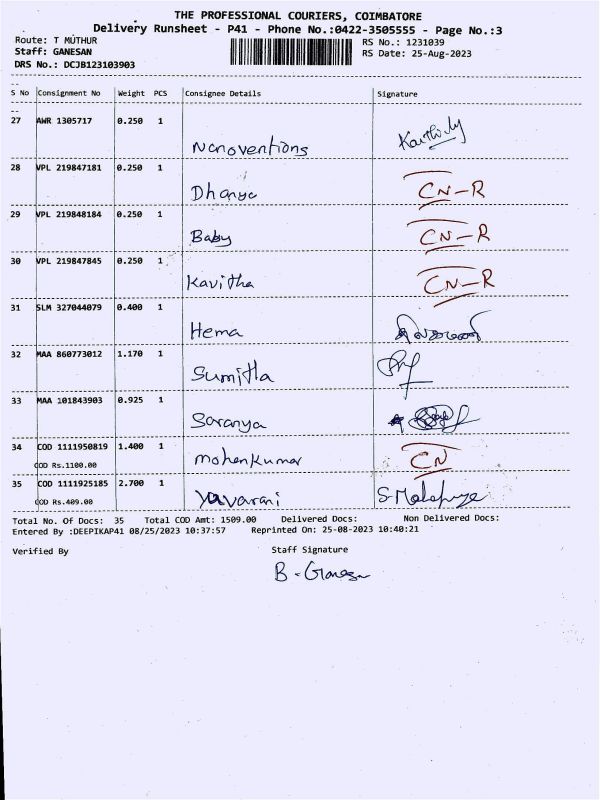 THE PROFESSIONAL COURIERS, COIMBATORE
Delivery Runsheet - P41 - Phone No.:0422-3505555 - Page No.:3
Route: T MUTHUR
RS No.: 1231039
Staff: GANESAN
RS Date: 25-Aug-2023
DRS No.: DCJB123103903
S No Consignment No Weight PCS Consignee Details Signature
27 AWR 1305717 0.250 1
Nanoventions
28 VPL 219847181 0.250 1
Dhanya CN-R
29 VPL 219848184 0.250 1
Baby CN-R
30 VPL 219847845 0.250 1
Kavitha CN-R
31 SLM 327044079 0.400 1
Hema
32 MAA 860773012 1.170 1
Sumitla
33 MAA 101843903 0.925 1
Saranya
34 COD 1111950819 1.400 1
COD Rs.1100.00 mohankumar CN
35 COD 1111925185 2.700 1
COD Rs.409.00 Yavarani
Total No. Of Docs: 35 Total COD Amt: 1509.00 Delivered Docs: Non Delivered Docs:
Entered By :DEEPIKAP41 08/25/2023 10:37:57 Reprinted On: 25-08-2023 10:40:21
Verified By Staff Signature
B. Ganesan